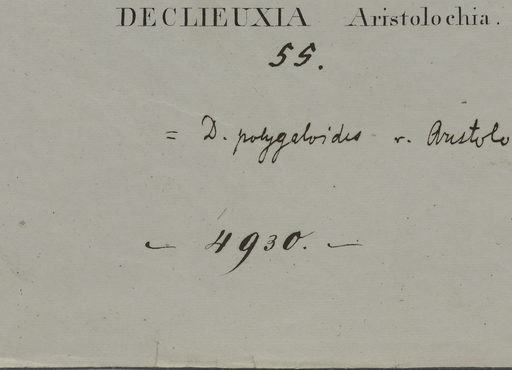 DECLIEUXIA Aristolochia.
55.
= D. polygaloides v. Aristolo
- 4930. -